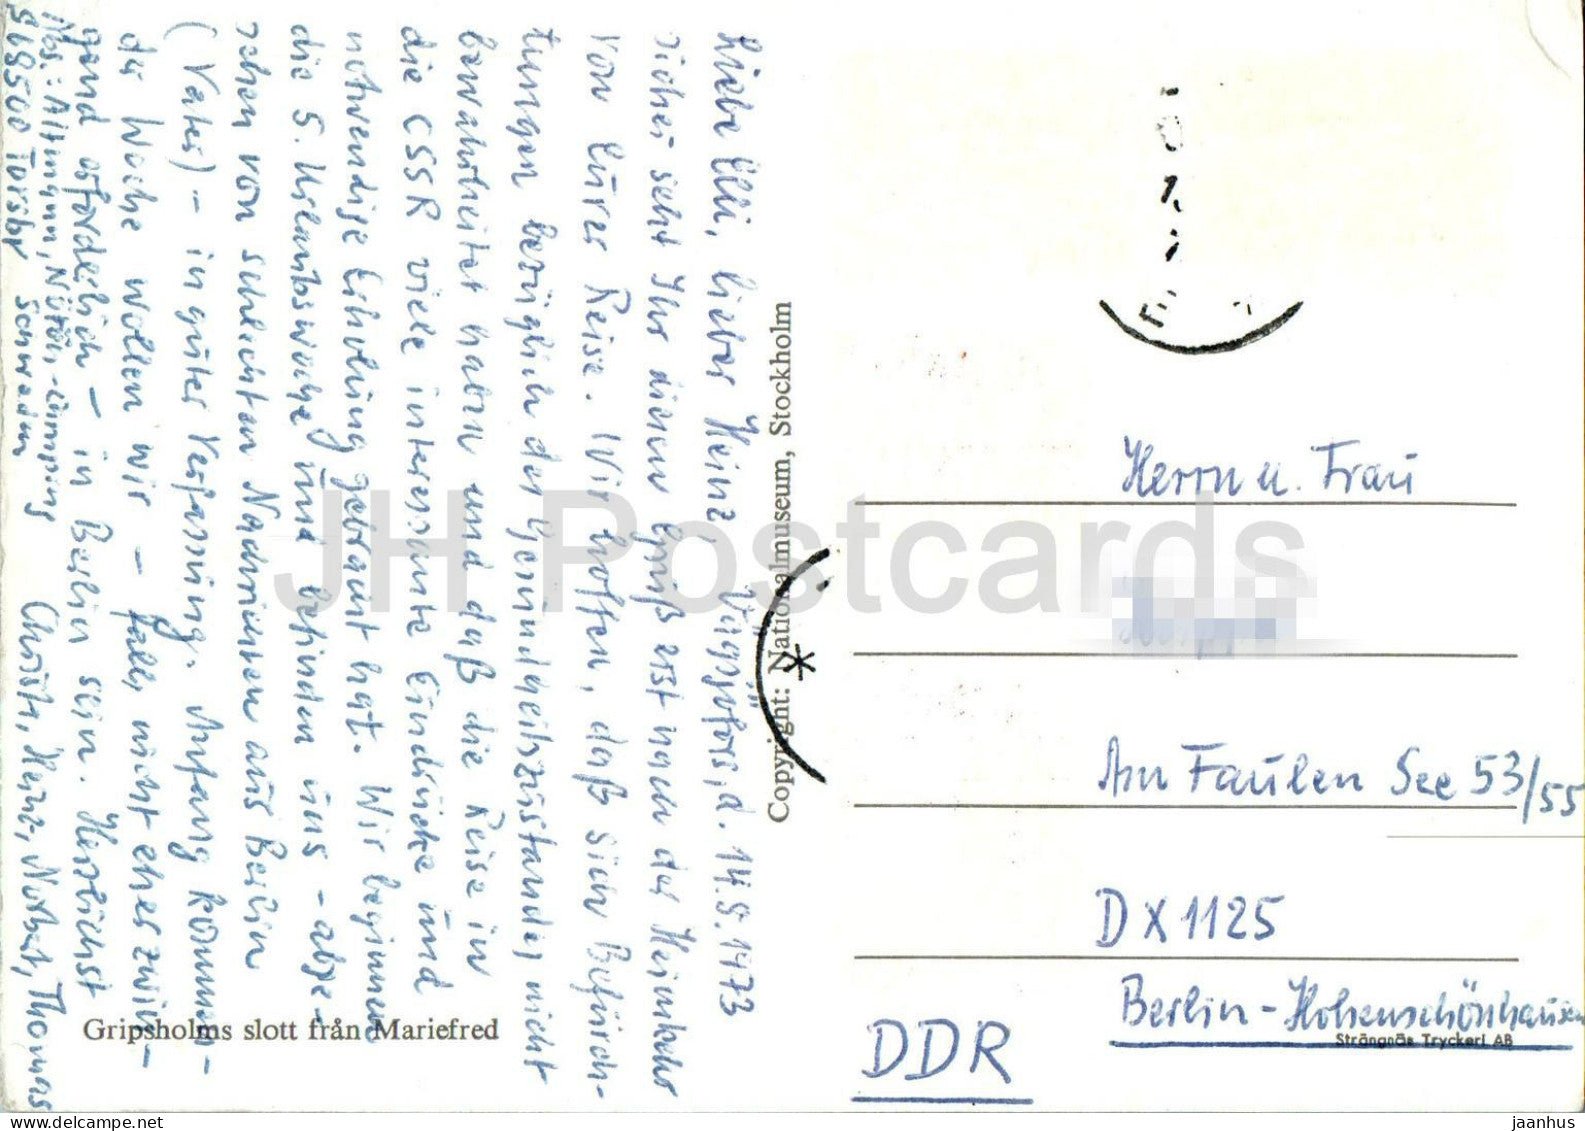 Liebe Elli, lieber Heinz, Vägsjöfors, d. 14.8.1973
sicher seht Ihr diesen Gruß erst nach der Heimkehr
von Eurer Reise. Wir hoffen, daß sich Befürch-
tungen bezüglich der Gesundheitszustandes nicht
bewahrheitet haben und daß die Reise in
die CSSR viele interessante Eindrücke und
notwendige Erholung gebracht hat. Wir beginnen
die 5. Urlaubswoche und befinden uns - abge-
sehen von schlechten Nachrichten aus Berlin
(Vater) - in guter Verfassung. Anfang kommen-
der Woche wollen wir - falls nicht eher zwin-
gend erforderlich - in Berlin sein. Herzlichst
Abs.: Altmann, Camping Christa, Heinz, Norbert, Thomas
S 68500 Torsby Schweden
Gripsholms slott från Mariefred
Copyright: Nationalmuseum, Stockholm
Herrn u. Frau
Am Faulen See 53/55
DX 1125
Berlin-Hohenschönhausen
Strängnäs Tryckeri AB
DDR
JH Postcards
www.delcampe.net
jaanhus